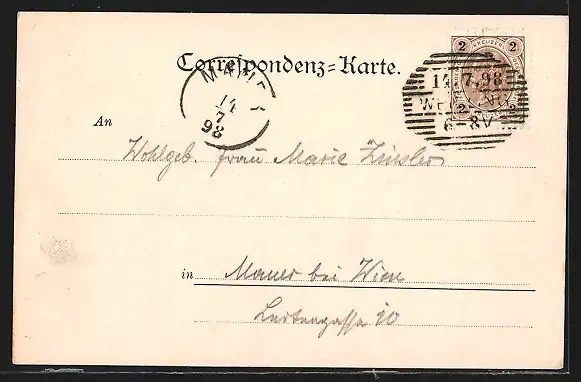 2 KREUZER 2
Correspondenz=Karte.
14 7.98
6-8V
2 2
MAUER
14
7
98
An
Wohlgeb. Frau Marie Zinsler
in Mauer bei Wien
20